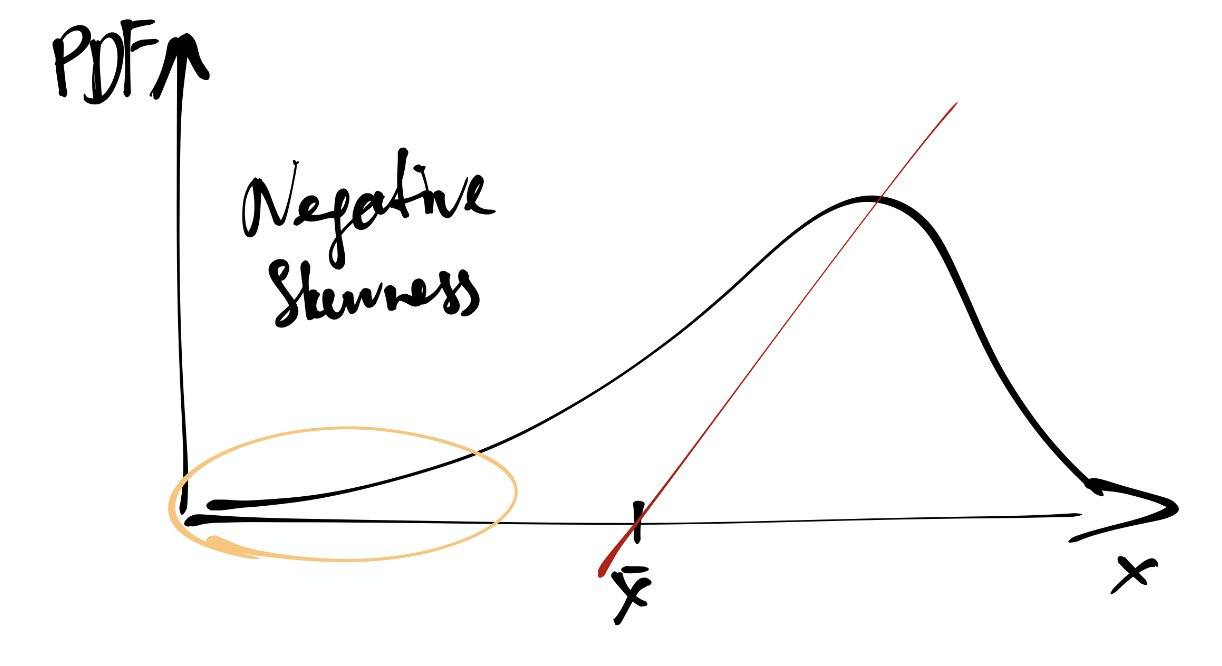 PDF
Negative
Skewness
x̄
x